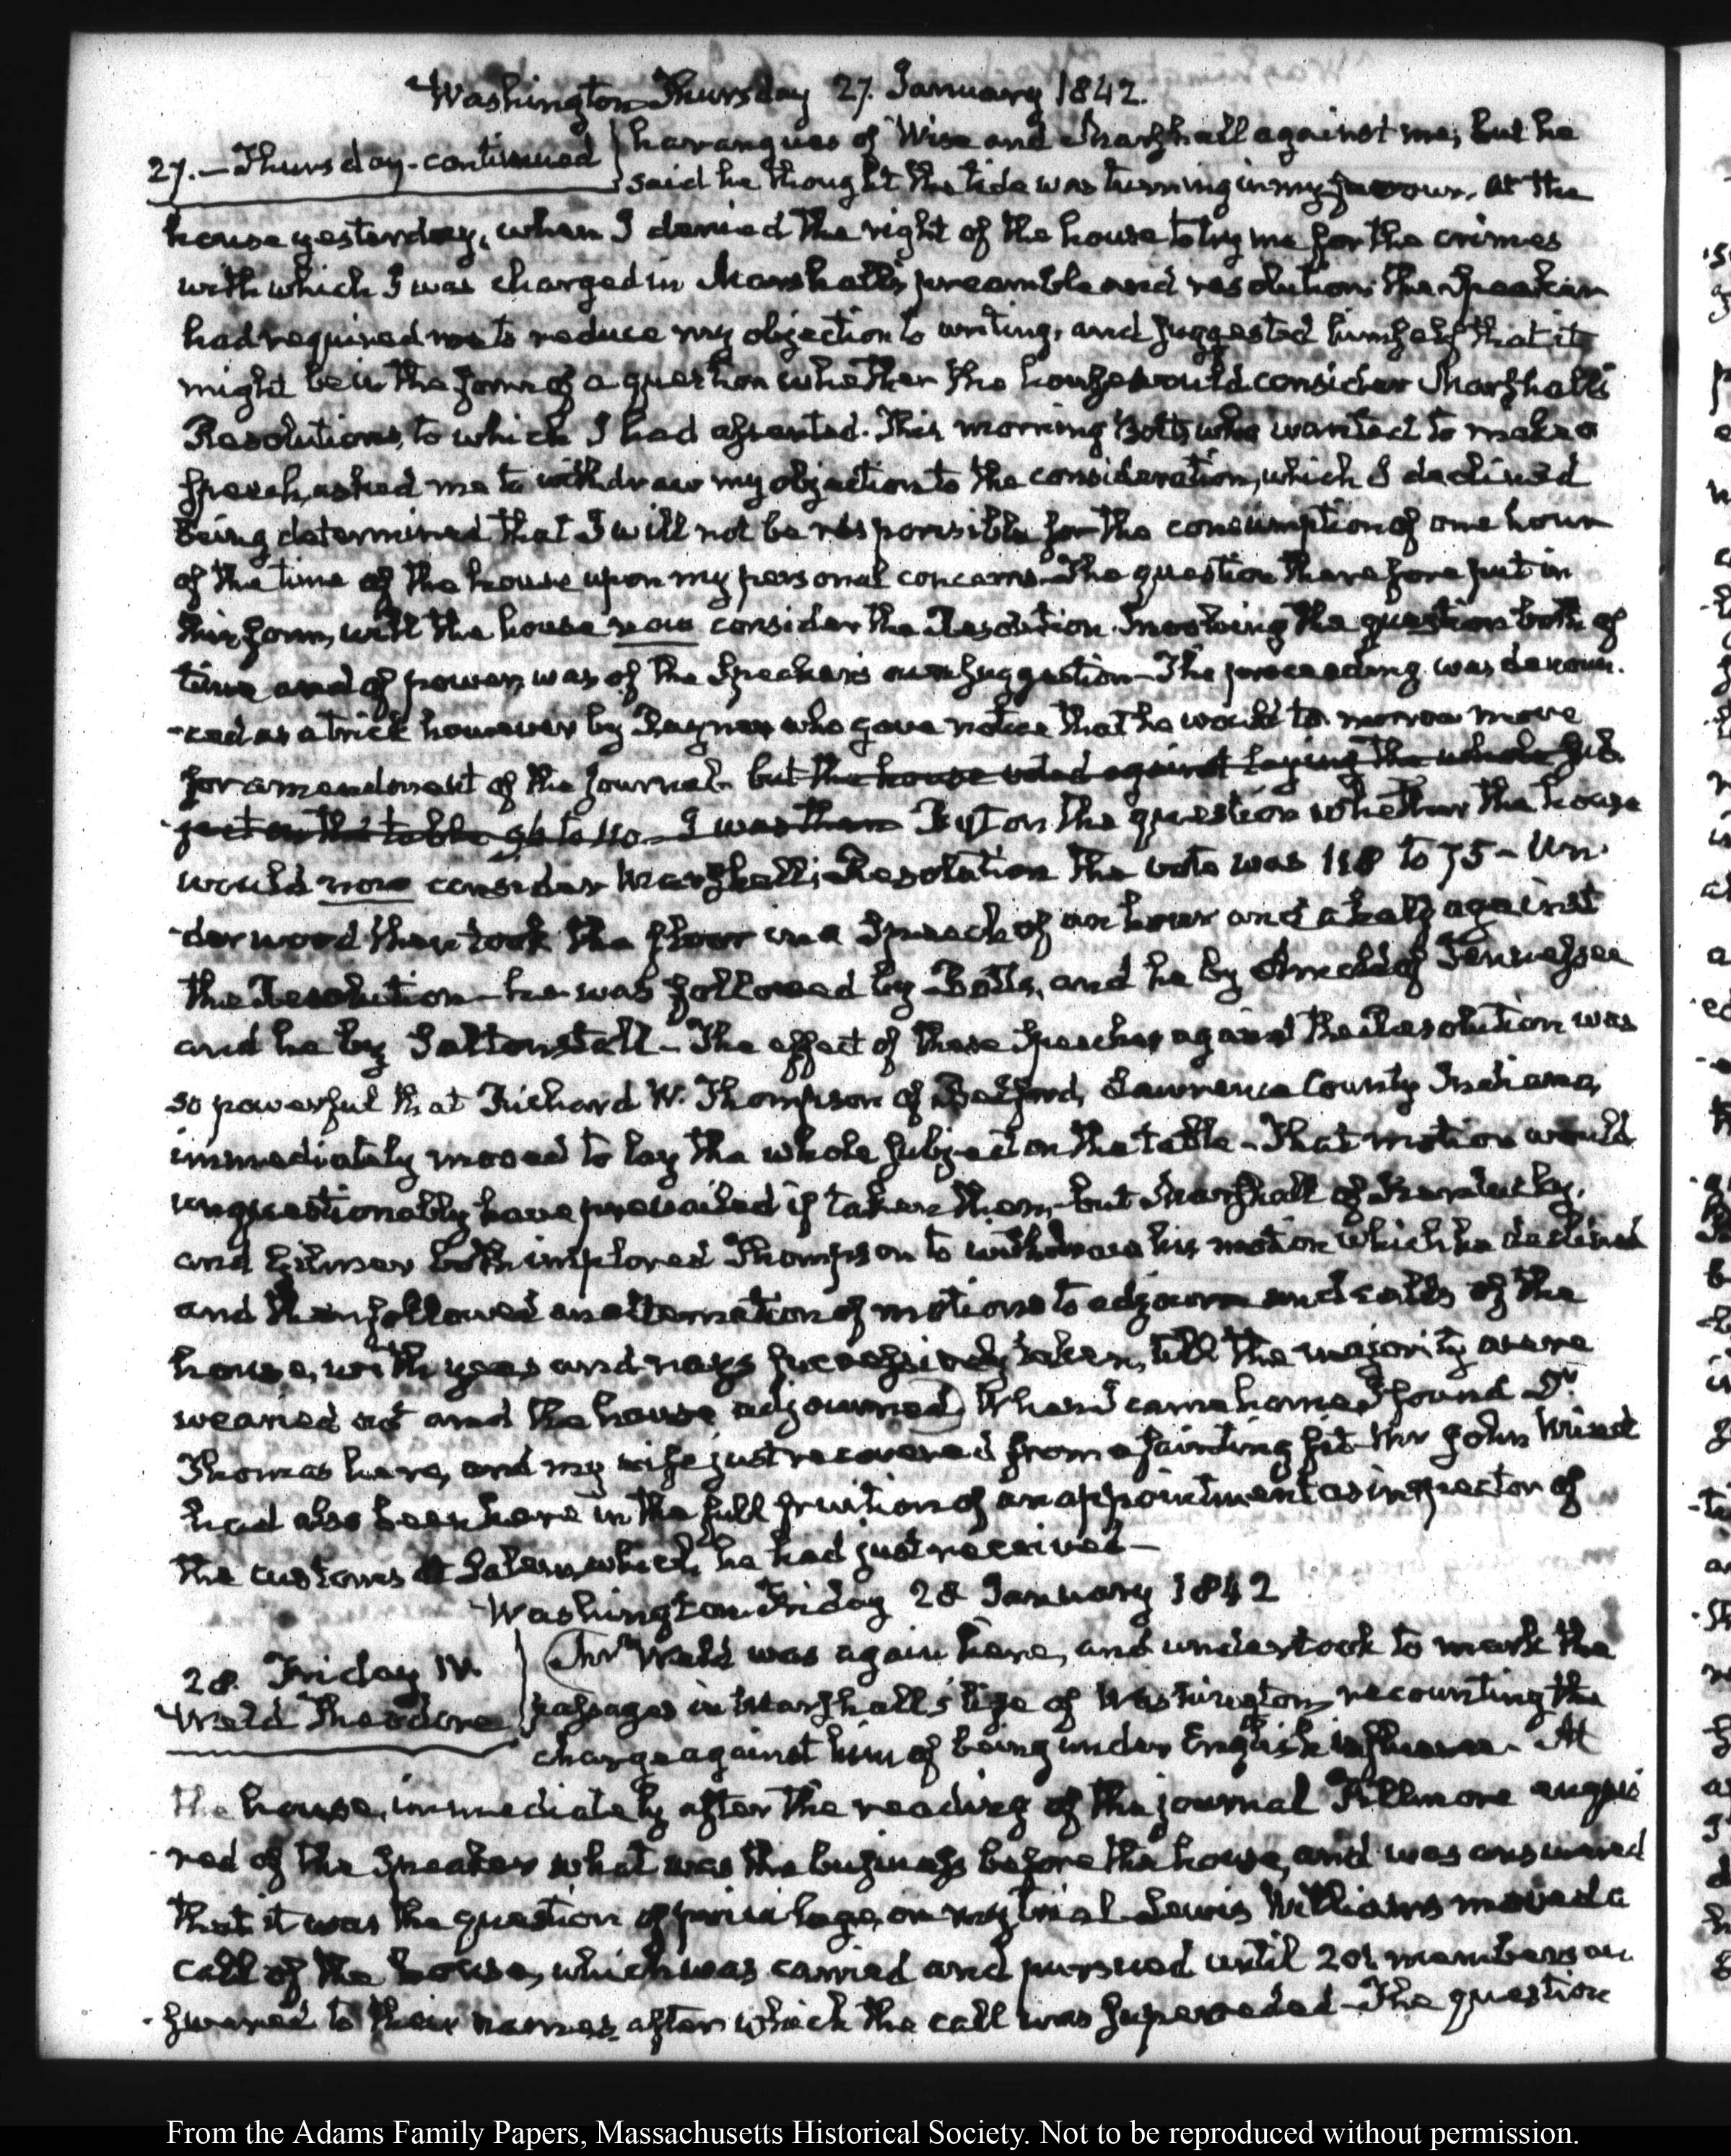 Washington Thursday 27. January 1842.
27.— Thursday-continued
harangues of Wise and Marshall against me; but he
said he thought the tide was turning in my favour. At the
house yesterday, when I denied the right of the house to try me for the crimes
with which I was charged in Marshall's preamble and resolution; the Speaker
had required me to reduce my objection to writing, and suggested himself that it
might be in the form of a question whether the house would consider Marshall's
Resolutions, to which I had assented. This morning Botts, who wanted to make a
speech, asked me to withdraw my objection to the consideration, which I declined
being determined that I will not be responsible for the consumption of one hour
of the time of the house upon my personal concerns. The question therefore put in
this form, will the house now consider the Resolution. Involving the question both of
time and of power, was of the Speaker's own suggestion— The proceeding was denoun-
-ced as a trick however by Rayner who gave notice that he would to-morrow move
for amendment of the journal. but the house voted against laying the whole sub-
-ject on the table 96 to 110. I was then But on the question whether the house
would now consider Marshall's Resolution the vote was 118 to 75— Un-
-derwood then took the floor in a Speech of an hour and a half against
the Resolution— he was followed by Botts, and he by Arnold of Tennessee
and he by Saltonstall— The effect of these Speeches against the Resolution was
so powerful that Richard W. Thompson of Bedford, Lawrence County Indiana,
immediately moved to lay the whole subject on the table— That motion would
unquestionably have prevailed if taken then,— but Marshall of Kentucky,
and Gilmer both implored Thompson to withdraw his motion which he declined
and then followed an alternation of motions to adjourn and calls of the
house, with yeas and nays successively taken, till the majority were
wearied out and the house adjourned) When I came home I found Dr.
Thomas here, and my wife just recovered from a fainting fit— Mr John
had also been here in the full fruition of an appointment as inspector of
the customs at Salem, which he had just received—
Washington Friday 28 January 1842
28. Friday IV.
Weld Theodore
(Mr Weld was again here, and undertook to mark the
passages in Marshall's life of Washington, recounting the
charge against him of being under English influence. At
the house, immediately after the reading of the journal Fillmore enqui
-red of the Speaker what was the business before the house, and was answered
that it was the question of privilege, on my trial— Lewis Williams moved a
call of the house, which was carried and pursued until 201 members an-
-swered to their names, after which the call was superseded— The question
From the Adams Family Papers, Massachusetts Historical Society. Not to be reproduced without permission.